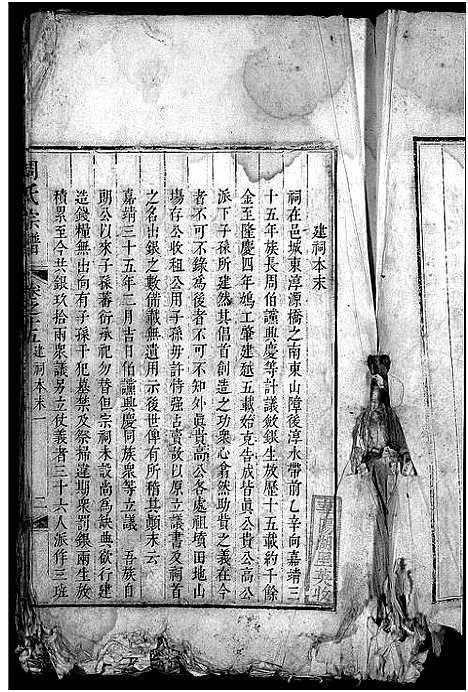 建祠本末
祠在邑城東淳源橋之南東山障後淳水帶前乙辛向嘉靖三
十五年族長周伯讜興慶等計議斂銀生放歷十五載約千餘
金至隆慶四年鳩工肇建越五載始克告成皆眞公貴公高公
派下子孫所建然其倡首創造之功衆心貪然助貲之義在今
者不可不錄爲後者不可不知外眞貴高公各處祖墳田地山
塲存公收租公用子孫毋許恃强占賣故以原立議書及祠首
之名出銀之數備載無遺用示後世俾有所稽其顚末云
嘉靖三十五年二月吉日伯讜興慶同族衆等立議 吾族自
期公以來子孫蕃衍承祀勿替但宗祠未設尚爲缺典欲行建
造錢糧無出向有子孫干犯墓禁及祭掃違期衆罰銀兩生放
積累至今共銀玖拾兩衆議另立仗義者三十六人派作三班
周氏宗譜 卷之五 建祠本末 一 二